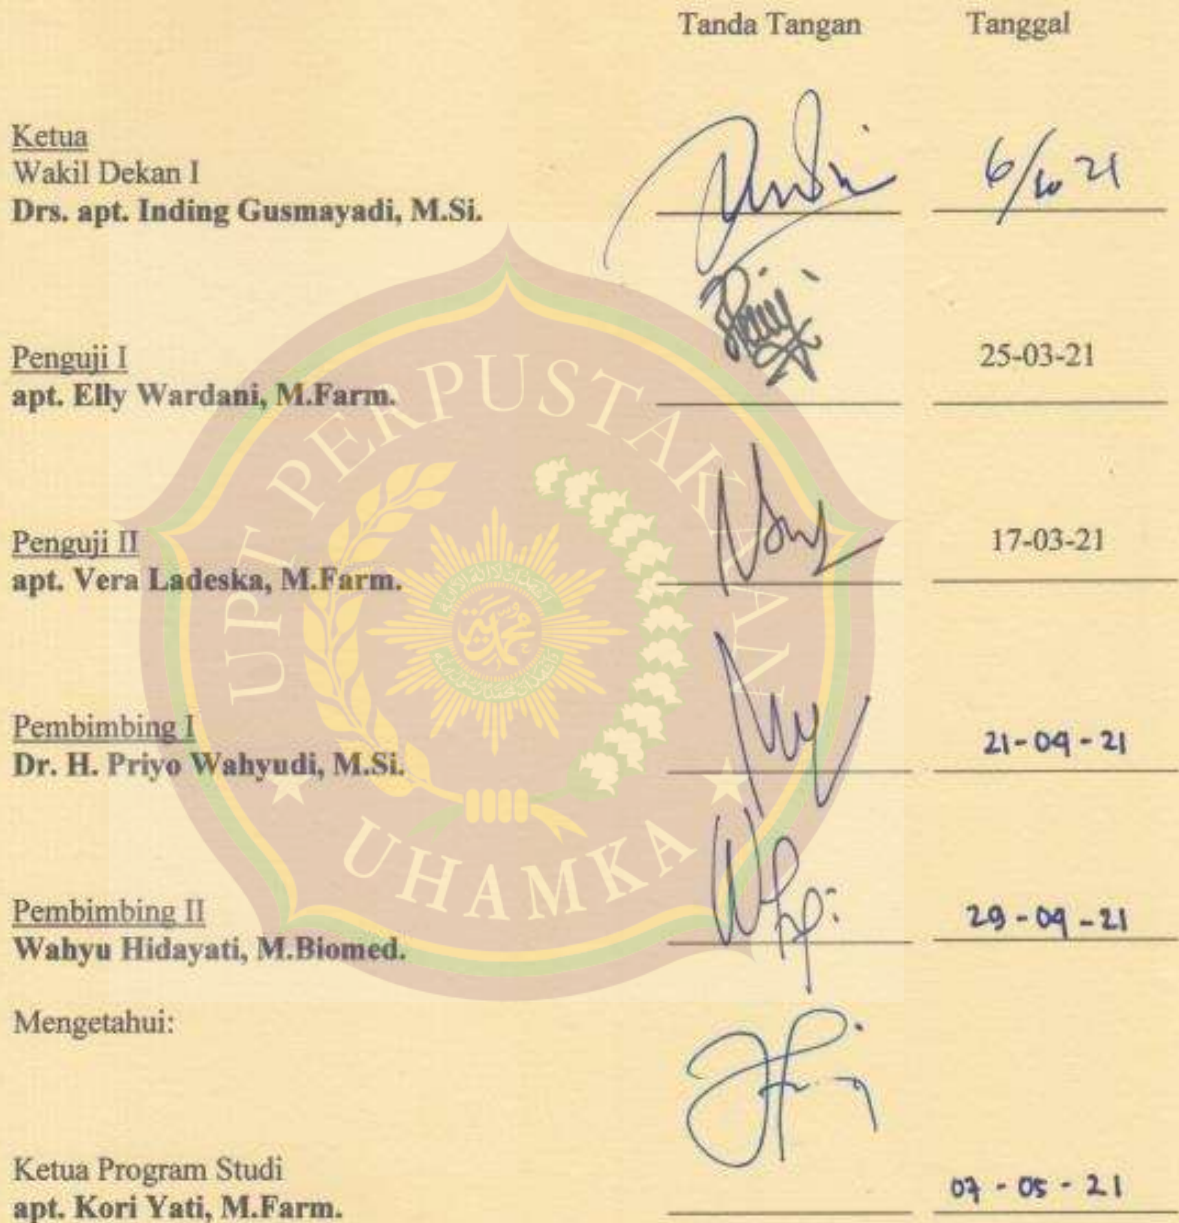 Tanda Tangan Tanggal
Ketua
Wakil Dekan I
Drs. apt. Inding Gusmayadi, M.Si. 6/10 21
Penguji I 25-03-21
apt. Elly Wardani, M.Farm.
Penguji II 17-03-21
apt. Vera Ladeska, M.Farm.
Pembimbing I
Dr. H. Priyo Wahyudi, M.Si. 21-04-21
Pembimbing II
Wahyu Hidayati, M.Biomed. 29-04-21
Mengetahui:
Ketua Program Studi
apt. Kori Yati, M.Farm. 07-05-21
UPT PERPUSTAKAAN
UHAMKA